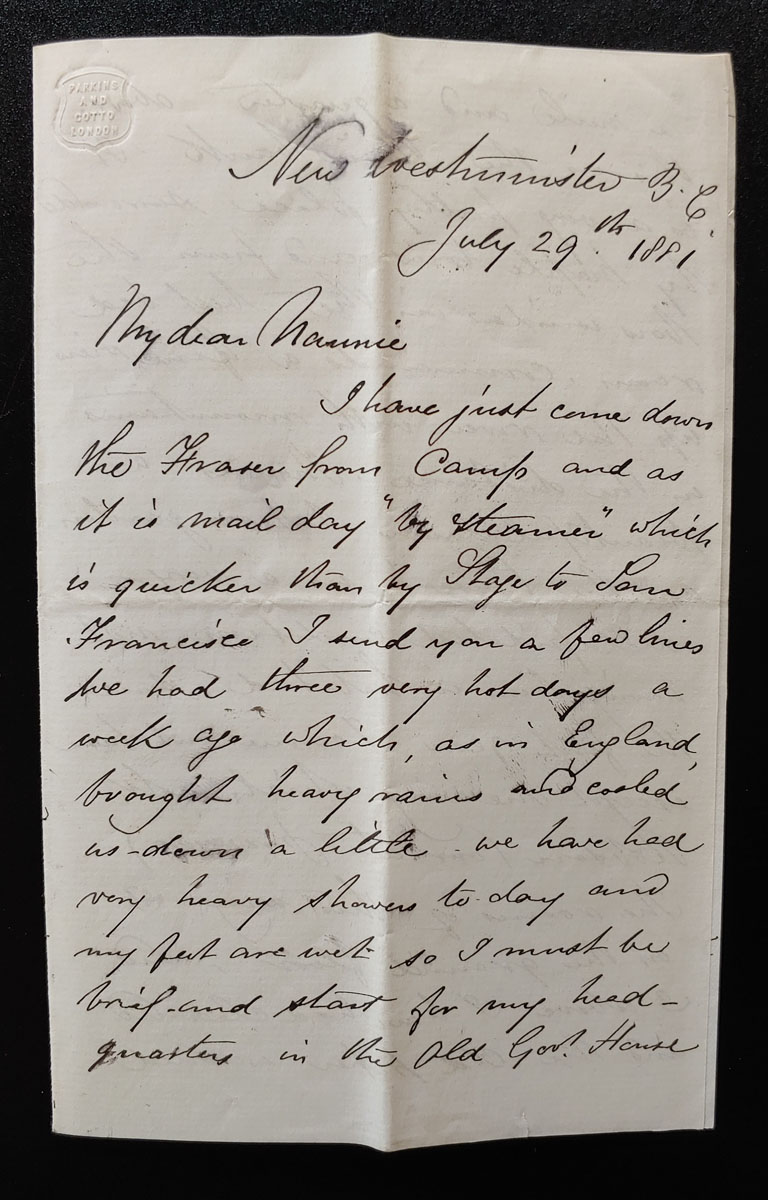 PARKINS
AND
GOTTO
LONDON
New Westminster B.C
July 29.th 1881
My dear Naunie
I have just come down
the Fraser from Camp and as
it is mail day "by steamer" which
is quicker than by Stage to San
Francisco I send you a few lines
We had three very hot days a
week ago which, as in England,
brought heavy rains and cooled
us-down a little - we have had
very heavy showers to-day and
my feet are wet so I must be
brief-and start for my head-
quarters in the Old Govt. House